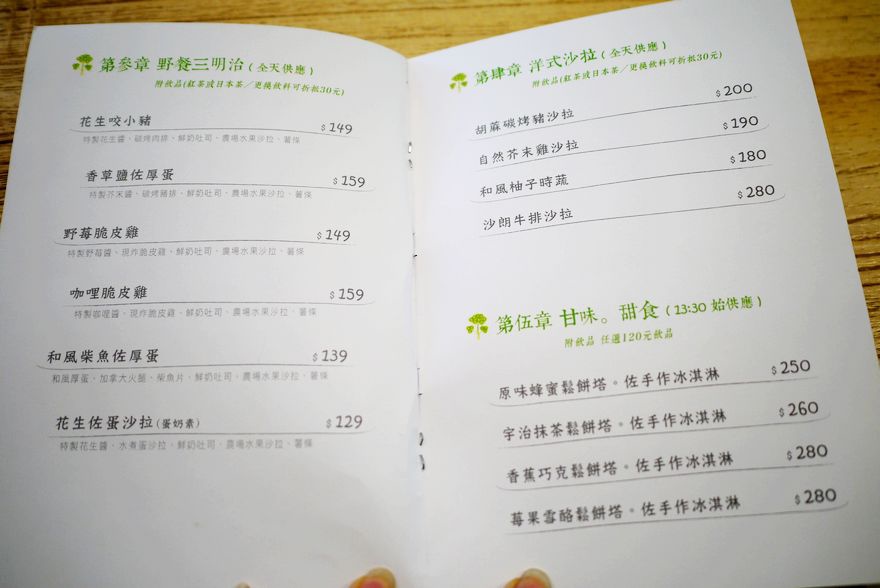 第參章 野餐三明治(全天供應)
附飲品(紅茶或日本茶／更換飲料可折抵30元)
花生咬小豬 $149
特製花生醬、碳烤肉排、鮮奶吐司、農場水果沙拉、薯條
香草鹽佐厚蛋 $159
特製芥末醬、碳烤豬排、鮮奶吐司、農場水果沙拉、薯條
野莓脆皮雞 $149
特製野莓醬、現炸脆皮雞、鮮奶吐司、農場水果沙拉、薯條
咖哩脆皮雞 $159
特製咖哩醬、現炸脆皮雞、鮮奶吐司、農場水果沙拉、薯條
和風柴魚佐厚蛋 $139
和風厚蛋、加拿大火腿、柴魚片、鮮奶吐司、農場水果沙拉、薯條
花生佐蛋沙拉(蛋奶素) $129
特製花生醬、水煮蛋沙拉、鮮奶吐司、農場水果沙拉、薯條
第肆章 洋式沙拉(全天供應)
附飲品(紅茶或日本茶／更換飲料可折抵30元)
胡蔴碳烤豬沙拉 $200
自然芥末雞沙拉 $190
和風柚子時蔬 $180
沙朗牛排沙拉 $280
第伍章 甘味。甜食(13:30 始供應)
附飲品 任選120元飲品
原味蜂蜜鬆餅塔。佐手作冰淇淋 $250
宇治抹茶鬆餅塔。佐手作冰淇淋 $260
香蕉巧克鬆餅塔。佐手作冰淇淋 $280
莓果雪酪鬆餅塔。佐手作冰淇淋 $280